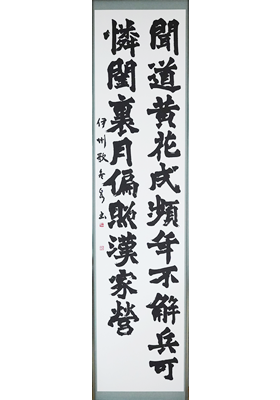 聞道黄花戍頻年不解兵可
憐閨裏月偏照漢家營
伊州歌